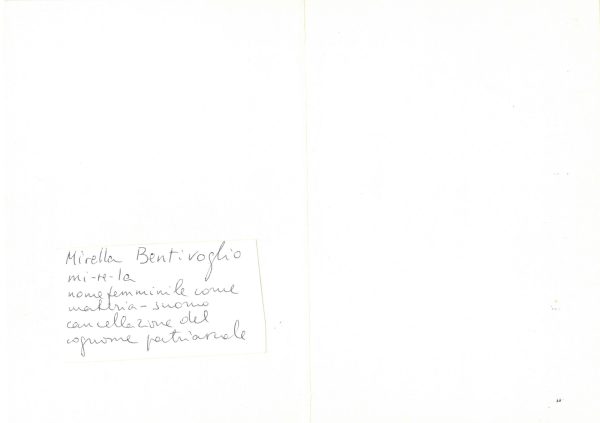 Mirella Bentivoglio
mi-re-la
nome femminile come
materia-suono
cancellazione del
cognome patriarcale